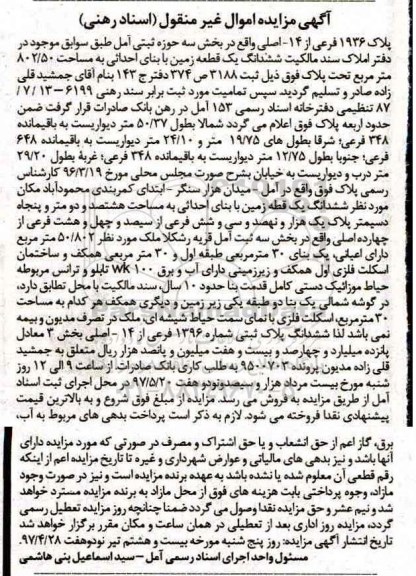 آگهی مزایده اموال غیر منقول (اسناد رهنی)
پلاک ۱۹۳۶ فرعی از ۱۴-اصلی واقع در بخش سه حوزه ثبتی آمل طبق سوابق موجود در
دفتر املاک سند مالکیت ششدانگ یک قطعه زمین با بنای احداثی به مساحت ۸۰۲/۵۰
متر مربع تحت پلاک فوق ذیل ثبت ۳۱۸۸ ص ۳۷۴ دفتر ج ۱۴۳ بنام آقای جمشید قلی
زاده صادر و تسلیم گردید. سپس تمامیت مورد ثبت برابر سند رهنی ۶۱۹۹-۱۳ / ۷ /
۸۷ تنظیمی دفترخانه اسناد رسمی ۱۵۳ آمل در رهن بانک صادرات قرار گرفت ضمن
حدود اربعه پلاک فوق اعلام می گردد شمالا بطول ۵۰/۳۷ متر دیواریست به باقیمانده
۳۴۸ فرعی؛ شرقا بطول های ۱۹/۷۵ متر و ۲۴/۱۰ متر دیواریست به باقیمانده ۶۴۸
فرعی؛ جنوبا بطول ۱۲/۷۵ متر دیواریست به باقیمانده ۳۴۸ فرعی؛ غربا بطول ۲۹/۲۰
متر درب و دیواریست به خیابان بشرح صورت مجلس محلی مورخ ۹۶/۳/۱۹ کارشناس
رسمی پلاک فوق واقع در آمل - میدان هزار سنگر - ابتدای کمربندی محمودآباد مکان
مورد نظر ششدانگ یک قطه زمین با بنای احداثی به مساحت هشتصد و دو متر و پنجاه
دسیمتر پلاک یک هزار و نهصد و سی و شش فرعی از سیصد و چهل و هشت فرعی از
چهارده اصلی واقع در بخش سه ثبت آمل قریه رشکلا ملک مورد نظر ۵۰/۸۰۲ متر مربع
دارای اعیانی، یک بنای ۳۰ مترمربعی طبقه اول و ۳۰ متر مربعی همکف و ساختمان
اسکلت فلزی اول همکف و زیرزمینی دارای آب و برق ۱۰۰ wk تابلو و ترانس مربوطه
حیاط موزائیک دستی کامل قدمت بنا حدود ۱۰ سال، سند مالکیت با محل تطابق دارد،
در گوشه شمالی یک بنا دو طبقه یکی زیر زمین و دیگری همکف هر کدام به مساحت
۳۰ مترمربع، اسکلت فلزی با نمای سمت حیاط شیشه ای، ملک در تصرف مدیون و بیمه
نمی باشد لذا ششدانگ پلاک ثبتی شماره ۱۳۹۶ فرعی از ۱۴ - اصلی بخش ۳ معادل
پانزده میلیارد و چهارصد و بیست و هفت میلیون و پانصد هزار ریال متعلق به جمشید
قلی زاده مدیون پرونده ۹۵۰۰۷۰۳ به طلب کاری بانک صادرات، از ساعت ۹ الی ۱۲ روز
شنبه مورخ بیست مرداد هزار و سیصد و نود و هفت ۹۷/۵/۲۰ در محل اجرای ثبت اسناد
آمل از طریق مزایده به فروش می رسد. مزایده از مبلغ فوق شروع و به بالاترین قیمت
پیشنهادی نقدا فروخته می شود. لازم به ذکر است پرداخت بدهی های مربوط به آب،
برق، گاز اعم از حق انشعاب و یا حق اشتراک و مصرف در صورتی که مورد مزایده دارای
آنها باشد و نیز بدهی های مالیاتی و عوارض شهرداری و غیره تا تاریخ مزایده اعم از اینکه
رقم قطعی آن معلوم شده یا نشده باشد به عهده برنده مزایده است و نیز در صورت وجود
مازاد، وجوه پرداختی بابت هزینه های فوق از محل مازاد به برنده مزایده مسترد خواهد
شد و نیم عشر و حق مزایده نقدا وصول می گردد ضمنا چنانچه روز مزایده تعطیل رسمی
گردد، مزایده روز اداری بعد از تعطیلی در همان ساعت و مکان مقرر برگزار خواهد شد
تاریخ انتشار آگهی مزایده: روز پنج شنبه مورخه بیست و هشتم تیر نود و هفت ۹۷/۴/۲۸.
مسئول واحد اجرای اسناد رسمی آمل – سید اسماعیل بنی هاشمی